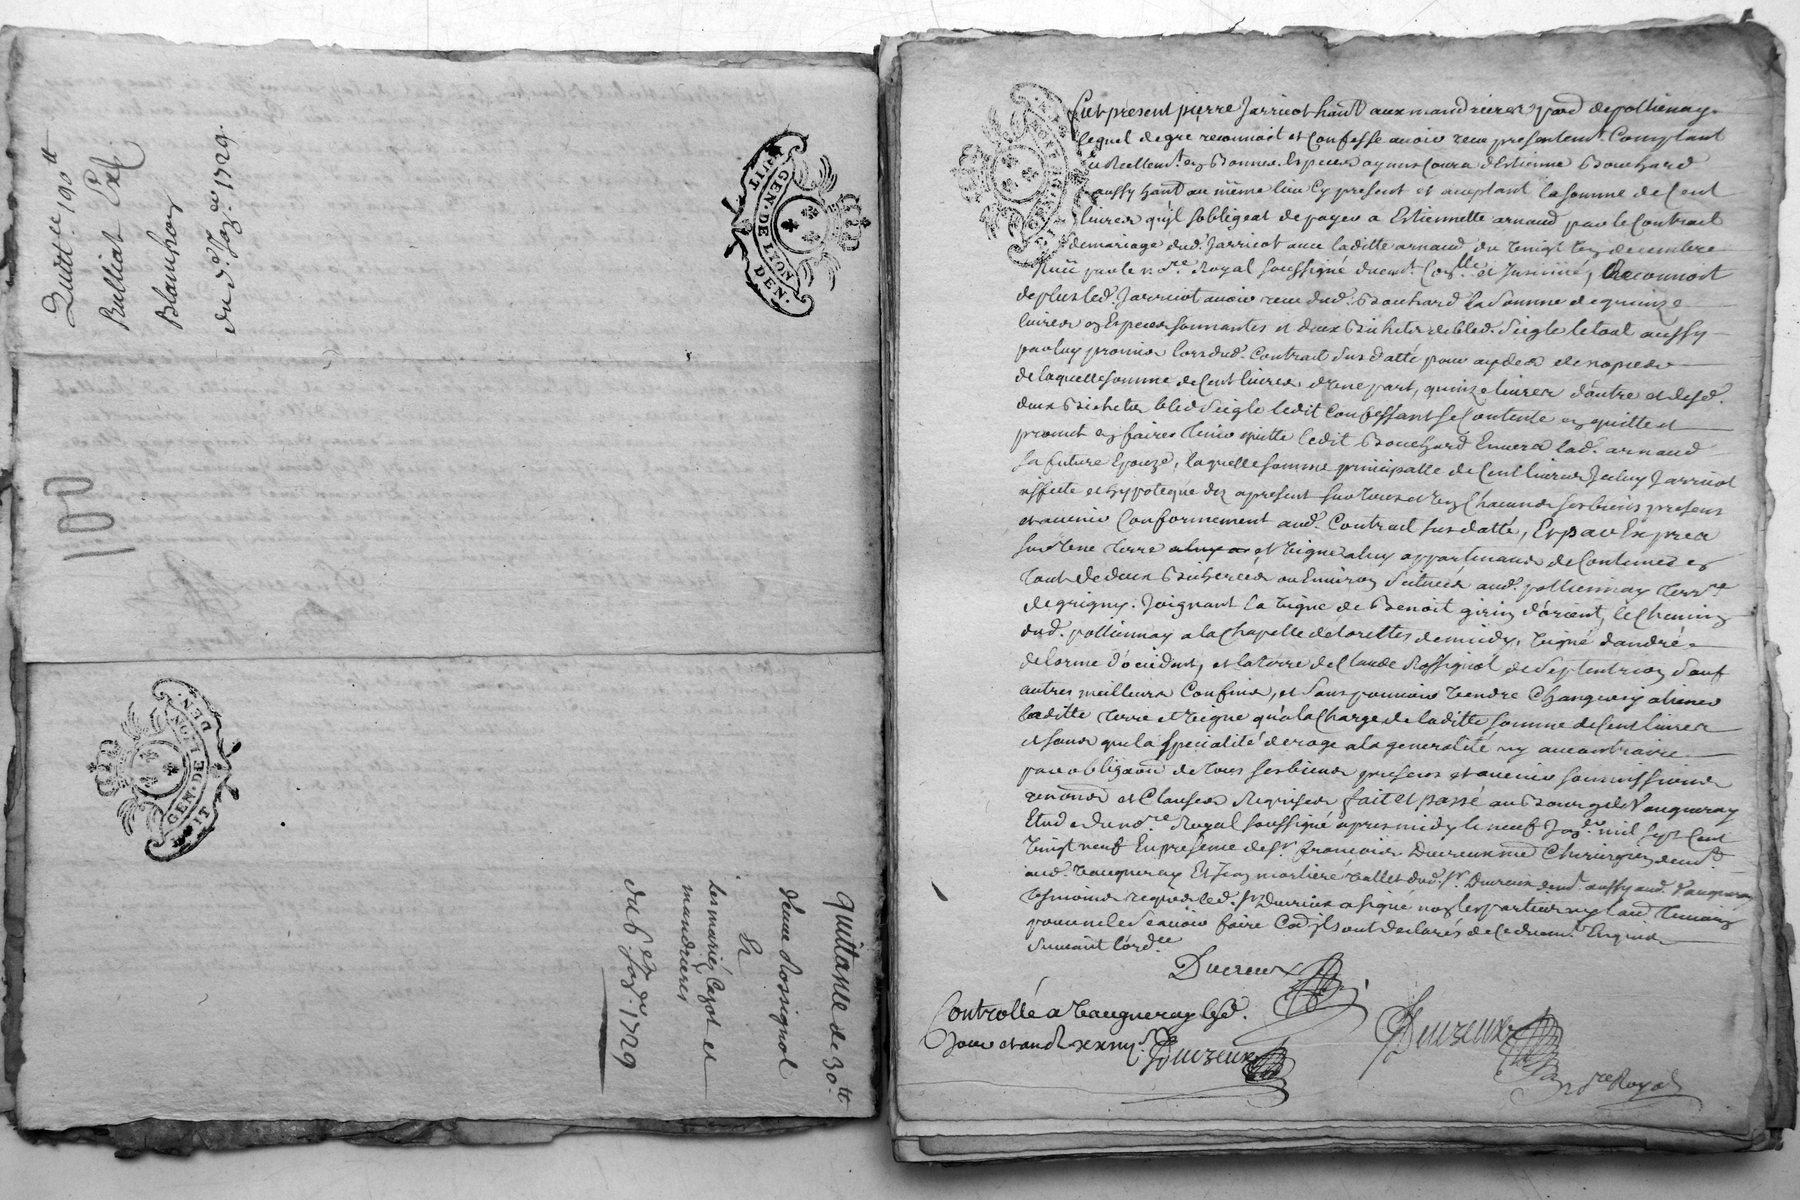 Quitt.ce 190 tt
Rulliat Ext.
Blanchon
du d. Janv.er 1729.
100
GEN. DE LYON
DEN.
HUIT
GEN. DE LYON
DEN.
HUIT
quittance de 30. tt
d'une Rossignol
Et
Les mariés Cazot et
mandrieres
du 6.e Janv. 1729
Fut present pierre Jarricot hant aux mandrieres par.d de pollienay.
lequel de gre reconnoit et Confesse avoir receu presentem.t Comptant
Reellem.t en Bonnes Especes ayans Cours d'Estienne Bouchard
aussy hant au même lieu Cy present et aceptant la somme de Cent
livres qu'il s'obligeat de payer a Estiennette arnaud par le Contrait
de mariage dud. Jarricot avec laditte arnaud du vingt six decembre
par le no.re Royal soussigné duem.t Con.llé et Insinué, Reconnoit
de plus led. Jarricot avoir receu dud. Bouchard la somme de quinze
livres en Especes sonnantes et deux Bichets de bled seigle le tout aussy
par luy promis lors dud. Contrait sus datté pour ayder
de laquelle somme de Cent livres d'une part, quinze livres d'autre et desd.
deux Bichets bled seigle ledit Confessant se Contente en quitte et
promet en faires tenir quitte ledit Bouchard Envers lad. arnaud
sa future Epouze, laquelle somme principalle de Cent livres Jceluy Jarricot
affecte et hypoteque dez apresent sur tous et un Chacuns ses biens presens
et avenir Conformement aud. Contrait sus datté, Et par Exprez
sur Une terre et vigne a luy appartenans de Contenue en
tout de deux Bicherées ou Environ scituées aud. polliennay terr.re
de grigny. Joignant la vigne de Benoit girin d'orient, le Chemin
dud. pollienay a la Chapelle de lorettes de midy, vigne d'andré
delorme d'occident, et la terre de Claude Rossignol de septentrion sauf
autres meilleurs Confins, et sans pouvoir vendre Changer ny aliener
laditte terre et vigne qu'a la Charge de laditte somme de Cent livres
et sans que la specialité deroge a la generalité ny au contraire
par obligaon de tous ses biens presens et avenir soumissions
renonces et Clauses Requises fait et passé au Bourg de Vaugneray
Etude du no.re Royal soussigné apres midy le neuf Janv.er mil sept Cent
vingt neuf En presence de S.r francois Ducreux me Chirurgien dem.t
aud. Vaugneray Et Jean morliere vallet dud. S.r Ducreux dem.t aussy aud. Vaugneray
tesmoins requis led. S.r Ducreux a signé non les parties ny l'autre temoin
pour ne le scavoir faire Co'ils ont declarés de Ce duem.t Enquis
suivant l'ord.ce
Ducreux
Controllé a Vaugneray led.
Jour et an
Ducreux
Ducreux
n.re Royal